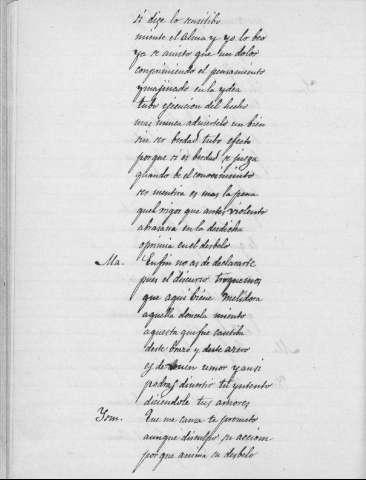 si dize lo sensitibo
miente el alma y yo lo beo
ya se a uisto que un dolor
comprimiendo el pensamiento
ymajinado en la ydea
tubo ejecucion del hecho
mas nunca aduierto un bien
sin ser berdad tubo efeto
porque si es berdad se juzga
quando be el conocimiento
ser mentira es mas la pena
quel rigor que antes violento
abrasaua en la desdicha
oprimia en el desbelo
Ma. En fin no as de declararte
pues el discurso troquemos
que aqui biene Melidora
aquella donzela miento
aquesta que fue cautiba
deste brazo y deste azero
es de buen umor y ansi
podras diuertir tu yntento
diciendole tus amores
Ism. Que me cansa te prometo
aunque disculpo su accion
porque anima su desbelo